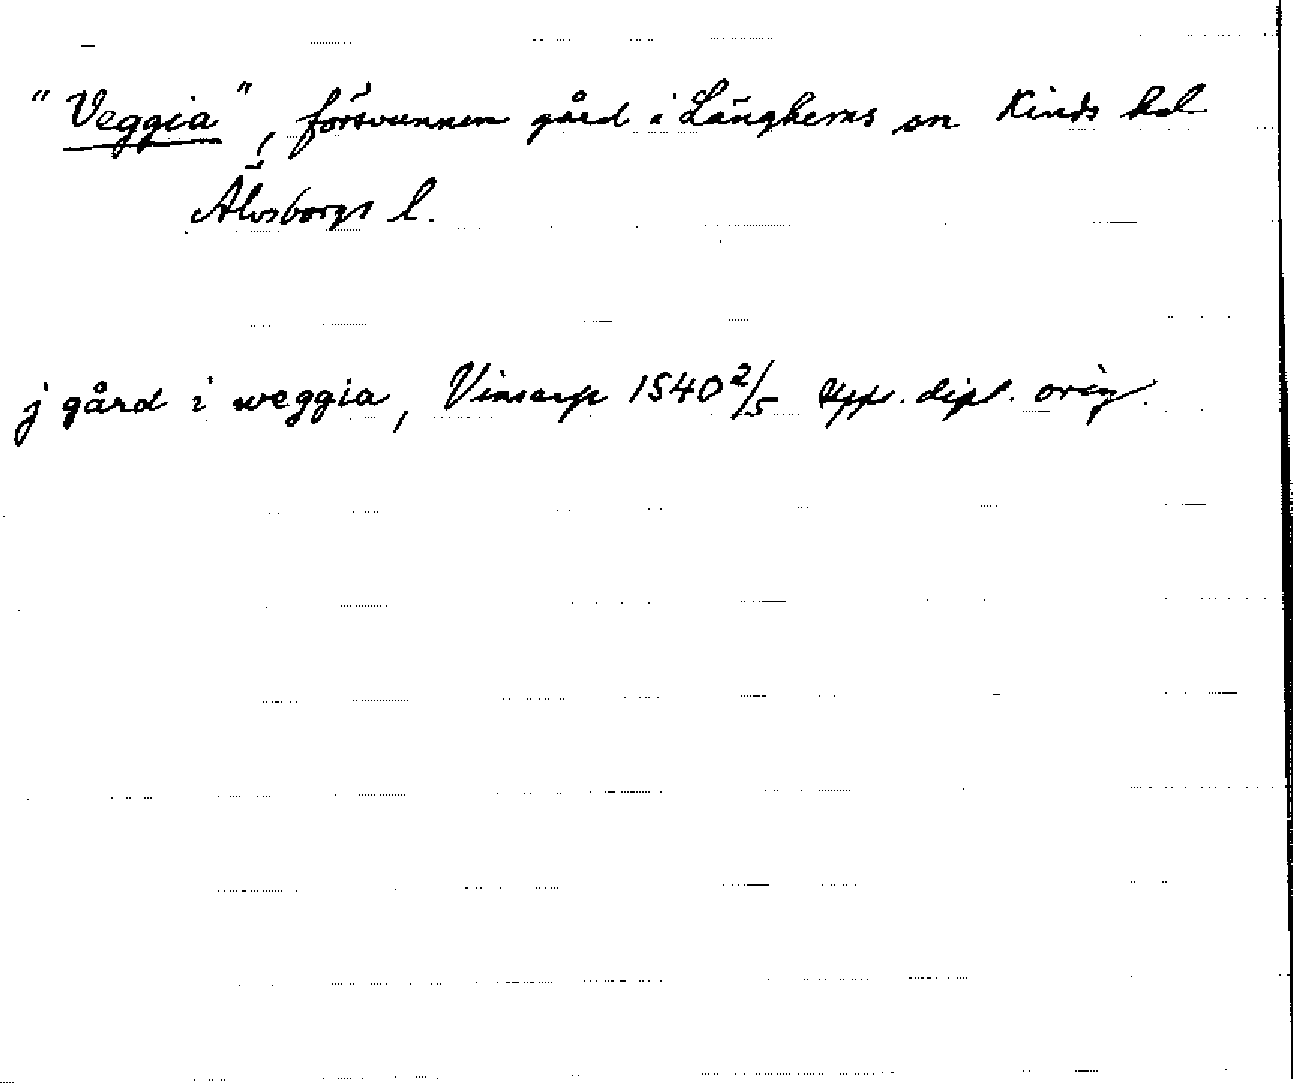 "Veggia", försvunnen gård i Länghems sn Kinds hd
Älvsborgs l.
j gård i weggia, Vinsarp 1540 2/5 Upps. dipl. orig.